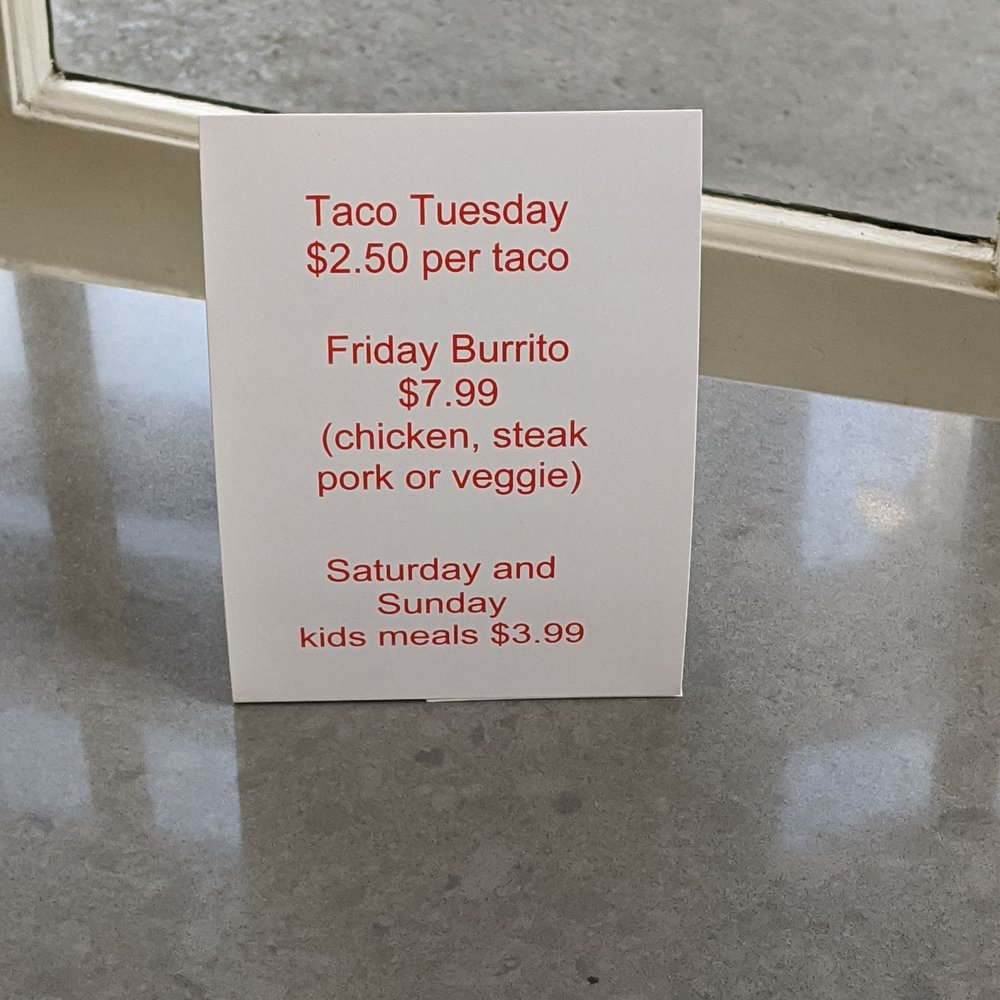 Taco Tuesday
$2.50 per taco
Friday Burrito
$7.99
(chicken, steak
pork or veggie)
Saturday and
Sunday
kids meals $3.99